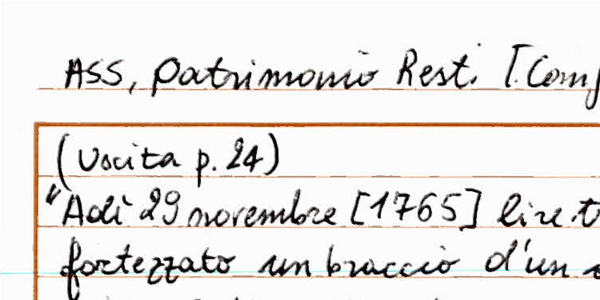 ASS, Patrimonio Resti [Comp
(Uscita p. 24)
"Adì 29 novembre [1765] lire t
fortezzato un braccio d'un